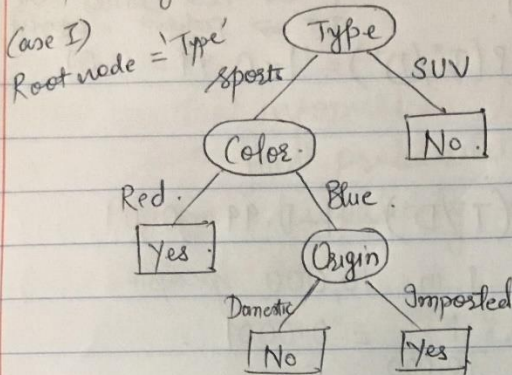 (Case I)
Root node = 'Type'
Type
Sports
SUV
Color.
No.
Red.
Blue.
Yes.
Origin
Domestic
Imported
No
Yes